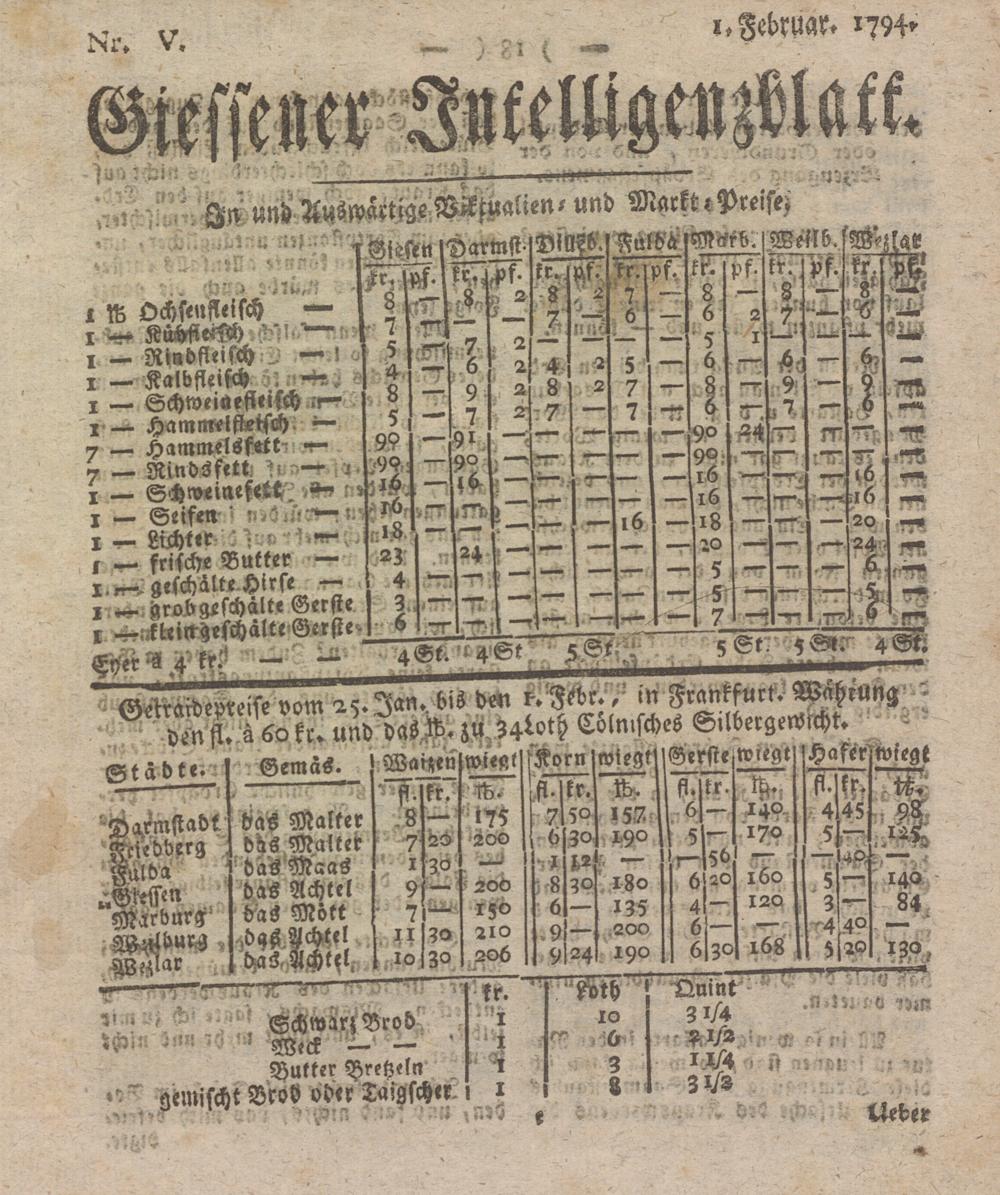 Nr. V.
1. Februar. 1794.
Giessener Intelligenzblatt.
In und Auswärtige Viktualien- und Markt-Preise,
Giesen Darmst. Dillb. Fulda Marb. Weilb. Wezlar
kr. pf. kr. pf. kr. pf. kr. pf. kr. pf. kr. pf. kr. pf.
1 ℔ Ochsenfleisch — 8 — 8 2 8 2 7 — 8 — 8 — 8 —
1 — Kühfleisch — 7 — — — 7 — 6 — 6 2 7 — 6 —
1 — Rindfleisch — 5 — 7 2 — — — — 5 1 — — — —
1 — Kalbfleisch — 4 — 6 2 4 2 5 — 6 — 6 — 6 —
1 — Schweinefleisch — 8 — 9 2 8 2 7 — 8 — 9 — 9 —
1 — Hammelfleisch — 5 — 7 2 7 — 7 — 6 — 7 — 6 —
7 — Hammelsfett — 90 — 91 — — — — — 90 24 — — — —
7 — Rindsfett — 90 — 90 — — — — — 90 — — — — —
1 — Schweinefett — 16 — 16 — — — — — 16 — — — 16 —
1 — Seifen — 16 — — — — — — — 16 — — — 16 —
1 — Lichter — 18 — — — — — 16 — 18 — — — 20 —
1 — frische Butter — 23 — 24 — — — — — 20 — — — 24 —
1 — geschälte Hirse — 4 — — — — — — — 5 — — — 6 —
1 — grobgeschälte Gerste 3 — — — — — — — 5 — — — 5 —
1 — kleingeschälte Gerste 6 — — — — — — — 7 — — — 6 —
Eyer à 4 kr. — — 4 St. 4 St 5 St. 5 St. 5 St. 4 St.
Getraidepreise vom 25. Jan. bis den 1. Febr., in Frankfurt. Währung
den fl. à 60 kr. und das ℔. zu 34 Loth Cölnisches Silbergewicht.
Städte. Gemäs. Waizen wiegt Korn wiegt Gerste wiegt Hafer wiegt
fl. kr. ℔. fl. kr. ℔. fl. kr. ℔. fl. kr. ℔.
Darmstadt das Malter 8 — 175 7 50 157 6 — 140 4 45 98
Friedberg das Malter 7 20 200 6 30 190 5 — 170 5 — 125
Fulda das Maas 1 30 — 1 12 — — 56 — — 40 —
Giessen das Achtel 9 — 200 8 30 180 6 20 160 5 — 140
Marburg das Mött 7 — 150 6 — 135 4 — 120 3 — 84
Weilburg das Achtel 11 30 210 9 — 200 6 — — 4 40 —
Wezlar das Achtel 10 30 206 9 24 190 6 30 168 5 20 130
kr. Loth Quint
Schwarz Brod 1 10 3 1/4
Weck — — 1 6 2 1/2
Butter Bretzeln 1 3 1 1/4
gemischt Brod oder Taigscher 1 8 3 1/2
Ueber